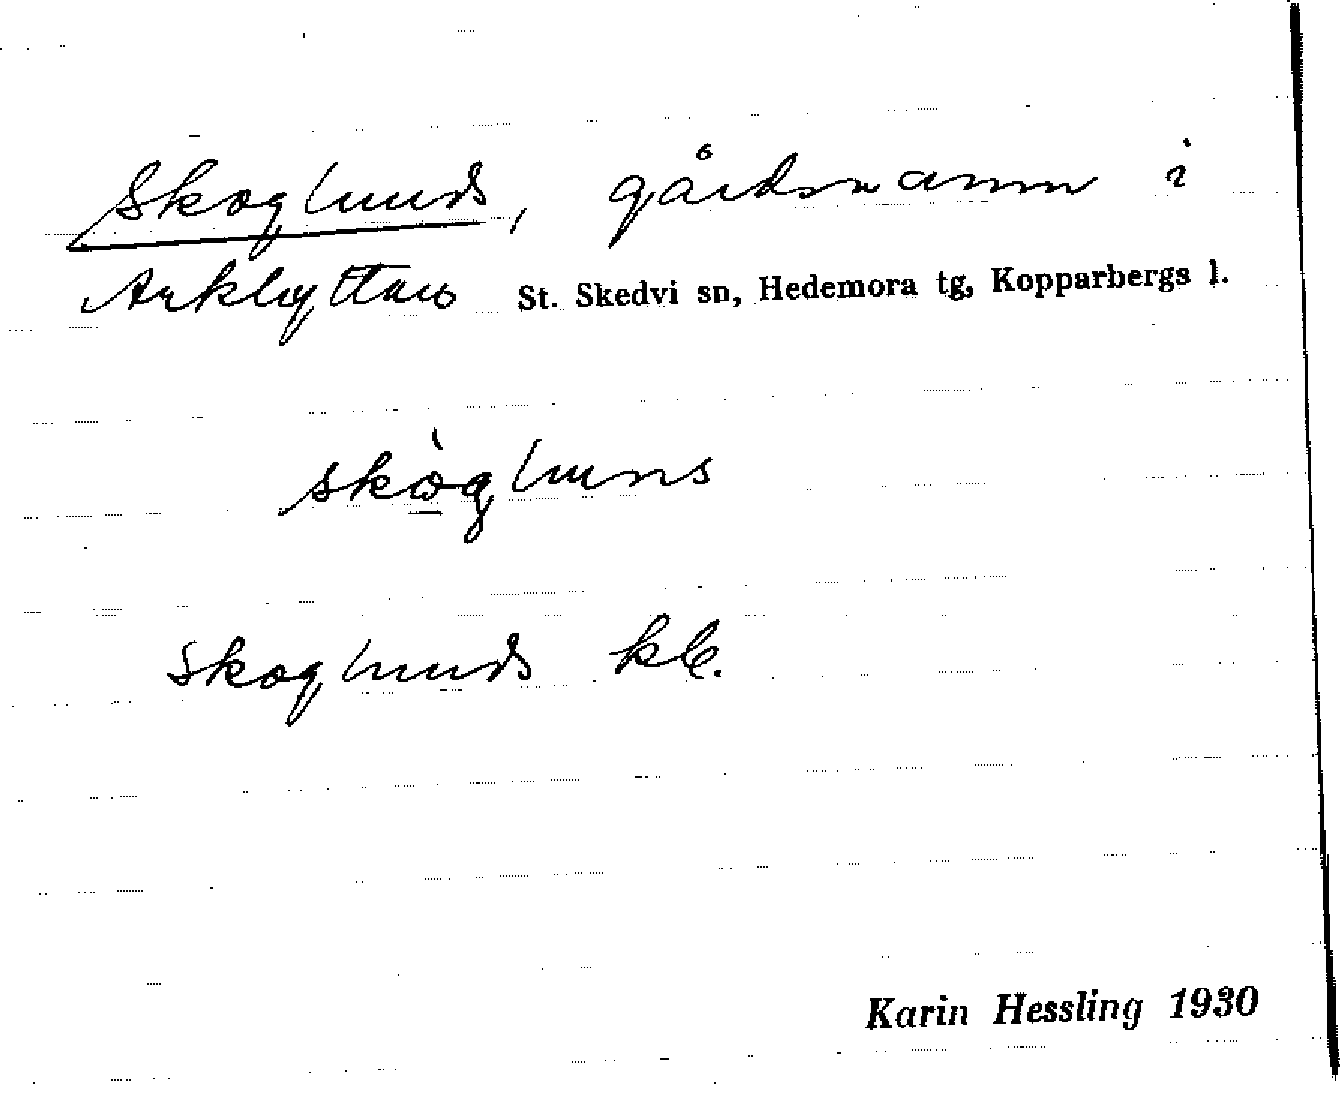 Skoglunds, gårdsnamn i
Arkhyttan St. Skedvi sn, Hedemora tg, Kopparbergs l.
skògluns
Skoglunds kb.
Karin Hessling 1930